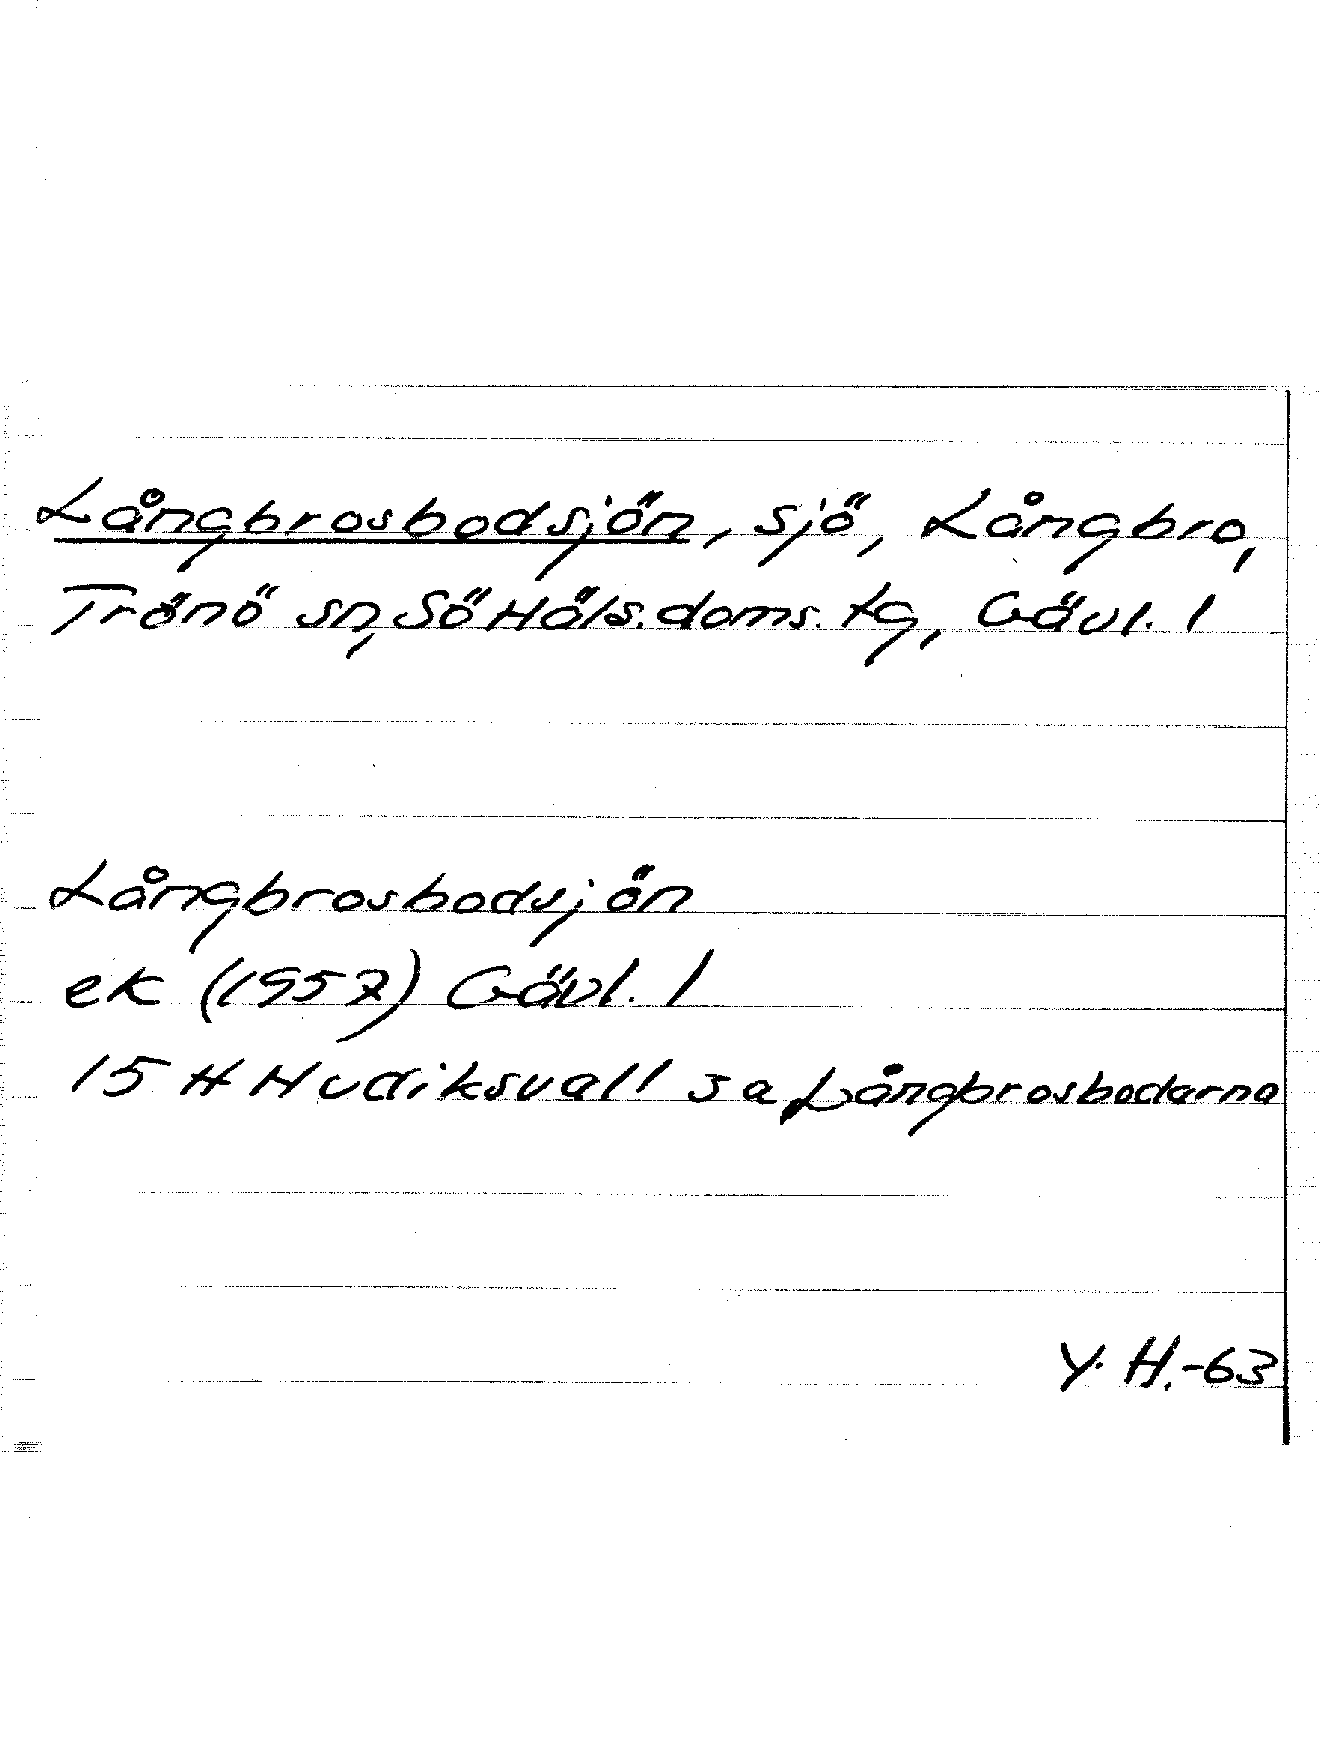 Långbrosbodsjön, sjö, Långbro,
Trönö sn, Sö Häls. doms. tg, Gävl. l
Långbrosbodsjön
ek (1957) Gävl. l
15 H Hudiksvall 3 a, Långbrosbodarna
Y. H.-63